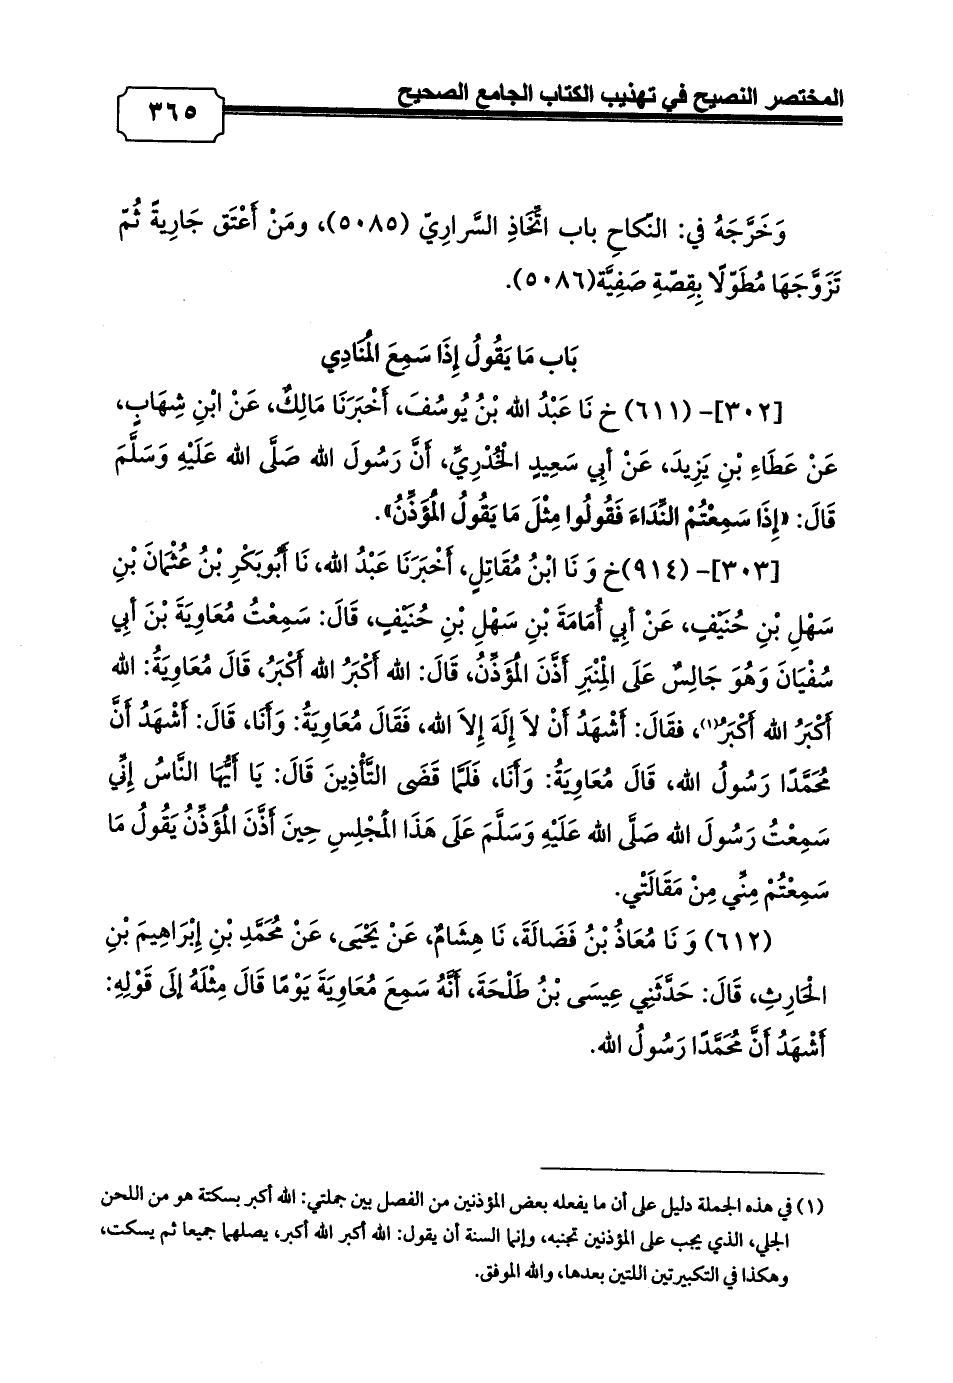 المختصر النصيح في تهذيب الكتاب الجامع الصحيح
٣٦٥
وَخَرَّجَهُ في: النِّكاحِ باب اتِّخَاذِ السَّرارِيّ (٥٠٨٥)، ومَنْ أَعْتَق جَارِيةً ثُمّ
تَزَوَّجَهَا مُطَوّلًا بِقِصّةِ صَفِيَّة(٥٠٨٦).
بَاب مَا يَقُولُ إِذَا سَمِعَ المُنَادِي
[٣٠٢]- (٦١١) خ نَا عَبْدُ الله بْنُ يُوسُفَ، أَخْبَرَنَا مَالِكٌ، عَنْ ابْنِ شِهَابٍ،
عَنْ عَطَاءِ بْنِ يَزِيدَ، عَنْ أبي سَعِيدٍ الخُدْرِيِّ، أَنَّ رَسُولَ الله صَلَّى الله عَلَيْهِ وَسَلَّمَ
قَالَ: «إِذَا سَمِعْتُمْ النِّدَاءَ فَقُولُوا مِثْلَ مَا يَقُولُ المُؤَذِّنُ».
[٣٠٣]- (٩١٤)خ وَ نَا ابْنُ مُقَاتِلٍ، أَخْبَرَنَا عَبْدُ الله، نَا أَبُوبَكْرِ بْنُ عُثْمَانَ بْنِ
سَهْلِ بْنِ حُنَيْفٍ، عَنْ أبي أُمَامَةَ بْنِ سَهْلِ بْنِ حُنَيْفٍ، قَالَ: سَمِعْتُ مُعَاوِيَةَ بْنَ أبي
سُفْيَانَ وَهُوَ جَالِسٌ عَلَى المِنْبَرِ أَذَّنَ المُؤَذِّنُ، قَالَ: الله أَكْبَرُ الله أَكْبَرُ، قَالَ مُعَاوِيَةُ: الله
أَكْبَرُ الله أَكْبَرُ(١)، فقَالَ: أَشْهَدُ أَنْ لاَ إِلَهَ إِلاَ الله، فَقَالَ مُعَاوِيَةُ: وَأَنَا، قَالَ: أَشْهَدُ أَنَّ
مُحَمَّدًا رَسُولُ الله، قَالَ مُعَاوِيَةُ: وَأَنَا، فَلَمَّا قَضَى التَّأْذِينَ قَالَ: يَا أَيُّهَا النَّاسُ إِنِّي
سَمِعْتُ رَسُولَ الله صَلَّى الله عَلَيْهِ وَسَلَّمَ عَلَى هَذَا المَجْلِسِ حِينَ أَذَّنَ المُؤَذِّنُ يَقُولُ مَا
سَمِعْتُمْ مِنِّي مِنْ مَقَالَتْي.
(٦١٢) وَ نَا مُعَاذُ بْنُ فَضَالَةَ، نَا هِشَامٌ، عَنْ يَحْيَى، عَنْ مُحَمَّدِ بْنِ إِبْرَاهِيمَ بْنِ
الحَارِثِ، قَالَ: حَدَّثَنِي عِيسَى بْنُ طَلْحَةَ، أَنَّهُ سَمِعَ مُعَاوِيَةَ يَوْمًا قَالَ مِثْلَهُ إِلَى قَوْلِهِ:
أَشْهَدُ أَنَّ مُحَمَّدًا رَسُولُ الله.
(١) في هذه الجملة دليل على أن ما يفعله بعض المؤذنين من الفصل بين جملتي: الله أكبر بسكتة هو من اللحن
الجلي، الذي يجب على المؤذنين تجنبه، وإنما السنة أن يقول: الله أكبر الله أكبر، يصلهما جميعا ثم يسكت،
وهكذا في التكبيرتين اللتين بعدها، والله الموفق.